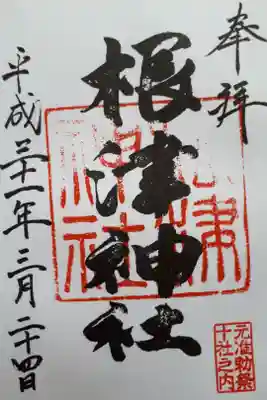 奉拝
根津神社
平成三十一年三月二十四日
元准勅祭
十社之内